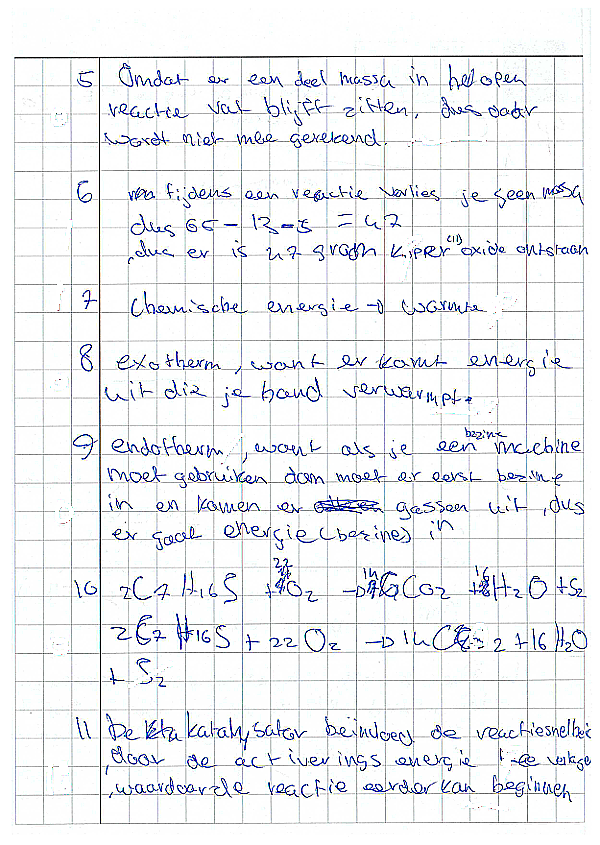 5 Omdat er een deel massa in het open
reactie vat blijft zitten, dus daar
wordt niet mee gerekend.
6 tijdens een reactie verlies je geen massa
dus 65 - 13 - 5 = 47
,dus er is 47 gram kipper (II) oxide ontstaan
7 Chemische energie → warmte
8 exotherm, want er komt energie
uit die je hand verwarmpt.
9 endotherm, want als je een bezine machine
moet gebruiken dan moet er eerst bezine
in en komen er gassen uit, dus
er gaat energie (bezine) in
10 2C7H16S + 22O2 → 14CO2 + 16H2O + S2
2C7H16S + 22O2 → 14CO2 + 16H2O
+ S2
11 De katalysator beinvloed de reactiesnelhei
,door de activerings energie te verlage
,waardoor de reactie eerder kan beginnen